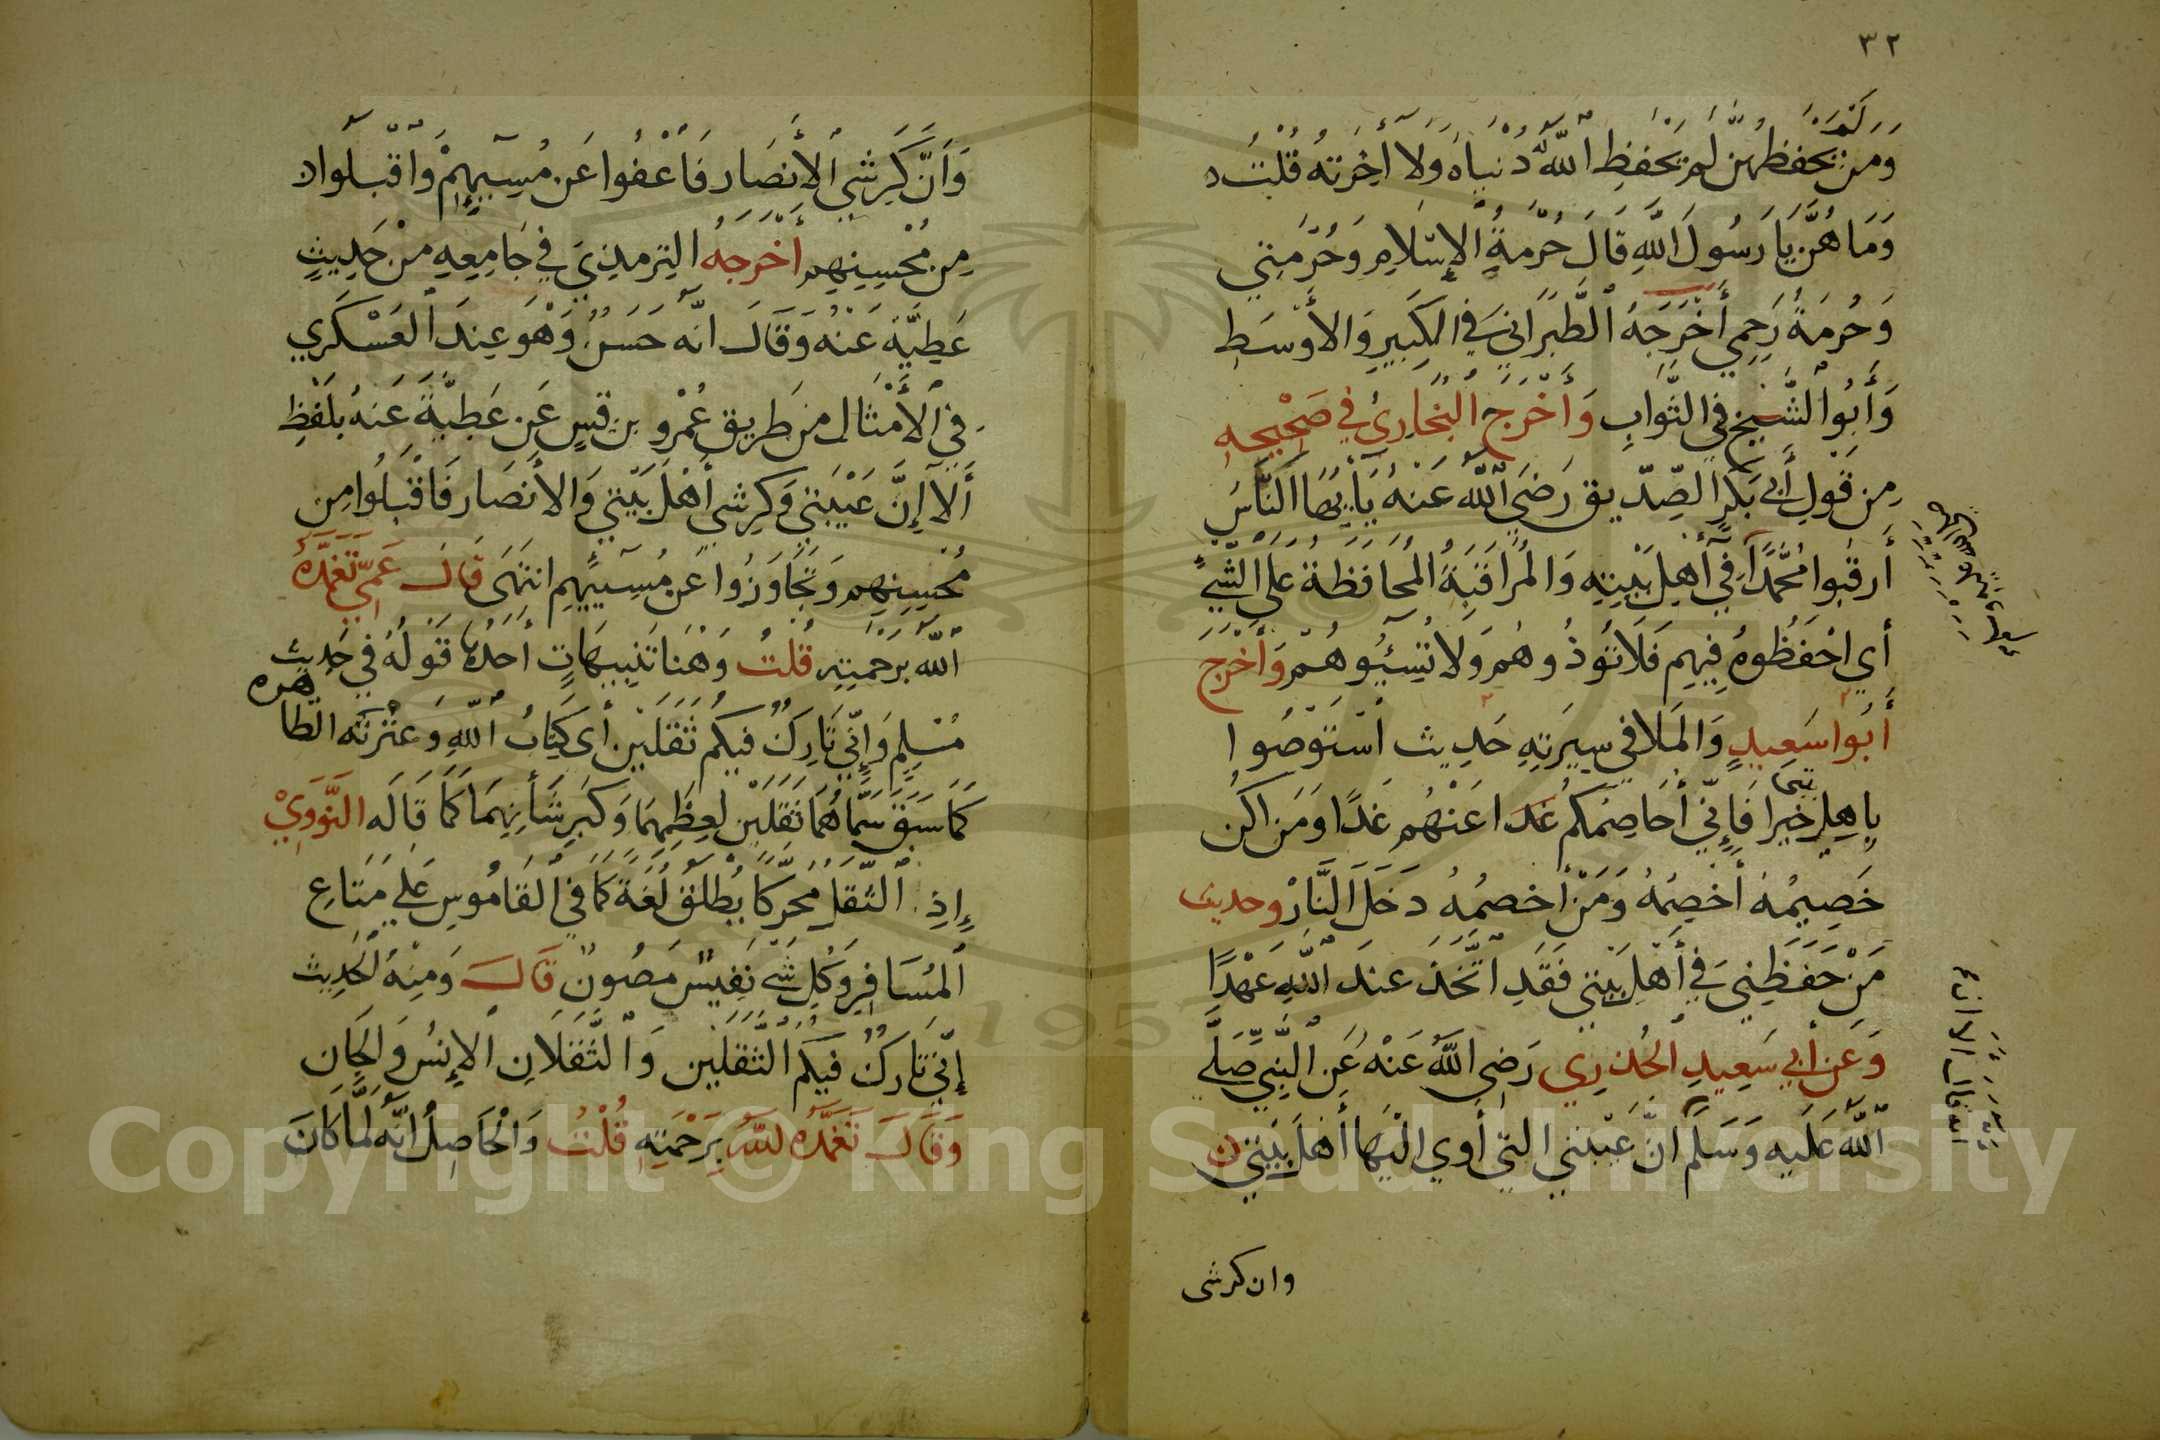 ٣٢
وَلَمْ
ومن يحفظهنّ لم يَحْفَظِ اللّهُ دُنْيَاهُ وَلَا آخِرَتهُ قُلْتُ
وَمَا هُنَّ يَا رَسُولَ اللَّهِ قَالَ حُرْمَةُ الْإِسْلَامِ وَحُرْمَتِي
وَحُرمَةُ رَحِمِي أَخْرَجَهُ الطَّبَرَانِي فِي الكَبِيرِ وَالأَوْسَطِ
وَأَبُوا الشَّيخ فِي الثَّوَابِ وَأَخْرَجَ البُخَارِيُ فِي صَحِيحِهِ
مِن قَوْلِ أَبِي بَكْرٍ الصِّدّيق رَضِيَ اللَّهُ عَنْهُ يَا أَيُّهَا النَّاسُ
أرقبُوا مُحَمَّدًا فِي أَهلِ بَيْتِهِ وَالمُرَاقَبَةُ المُحَافَظَةُ عَلَى الشَّيْءِ
أي احْفَظُوهُ فِيهِم فَلَا تُوذُوهُم وَلَا تُسِيئُوهُمْ وَأَخْرَجَ
أَبُوا سَعِيدٍ وَالمَلَا فِي سِيرَتِهِ حَدِيث اسْتَوْصُوا
بِاهل خَيرا فَإِنِّي أُخَاصِمُكُم غدا عَنْهُم غَدًا وَمَن اكُن
بيتي
خَصِيمُهُ أَخْصِمُهُ وَمَنْ أَخصمُهُ دَخَلَ النَّارْ وحديث
مَنْ حَفَظَنِي فِي أَهْلِ بَيْتِي فَقَدِ اتَّخَذَ عندَ اللَّهِ عَهْدًا
وَعَن أبي سَعِيدِ الخُدْرِي رَضِي اللَّهُ عَنْهُ عَنِ النَّبِيِّ صَلَّى
اللّهُ عَلَيهِ وَسَلَّمَ انَّ عَيْبَتِي الَّتِي أَوِي الَيْهَا أَهْلَ بَيْتِي
وان كرشى
وَأنَّ كَرِشِيَ الأَنصَار فَاعْفُوا عَن مُسِيئِهِمْ وَاقبَلُوا
مِن مُحْسِنِهِم أَخْرَجَهُ التِرمذِيَ فِي جَامِعِهِ مِنْ حَدِيثِ
عَطِيَّةَ عَنْهُ وَقَالَ انَّه حَسَنٌ وَهْوَ عِندَ العَسْكَرِي
فِي الأَمْثَال مِن طَرِيق عُمْرو بن قيسٍ عَن عَطِيَّةَ عَنهُ بلَفْظِ
أَلَا إِنَّ عَيْبَتِي وَكَرِشِي أَهْلَ بَيْتِي وَالأَنصَار فَاقْبَلُوا مِن
مُحْسِنِهِم وَتَجَاوَزُوا عَن مُسِيئِهِم انتَهَى قَالَ عَمِّي تَغَمَّدَهُ
اللّهُ بِرَحْمَتِهِ قُلتُ وَهُنَا تَنبِيهَاتٍ أَحَدُهَا قَوْلُهُ فِي حَدِيث
مُسْلِمٍ وَإِنِّي تَارِكٌ فِيكُم ثَقَلَيْنِ أي كِتَابُ اللَّهِ وَعِتْرَتَه الطا
هره
كَمَا سَبَقَ سَمَّاهُمَا ثَقَلَيْن لِعِظَمِهِمَا وَكَبَرِ شَأنِهِمَا كَمَا قَالَه النَّوَوِيْ
إِذِ الثَّقَلُ مُحَرَّكًا يُطْلَقُ لُغَةً كَمَا فِي القَامُوسِ عَلَى مَتَاعِ
المُسَافِرِ وَكُلِ شَيْ نَفِيسٌ مَصُونٌ قَالَ وَمِنْهُ الحَدِيث
إِنِّي تَارِكٌ فيكُم الثَّقَلَيْنِ وَالثَّقَلَانِ الإِنسُ وَالجَان
وَقَالَ تَغَمَّدَهُ اللَّهُ بِرَحْمَتِهِ قُلْتُ وَالْحَاصِلُ انَّهُ لَمَّا كَانَ
Copyright © King Saud University
1957